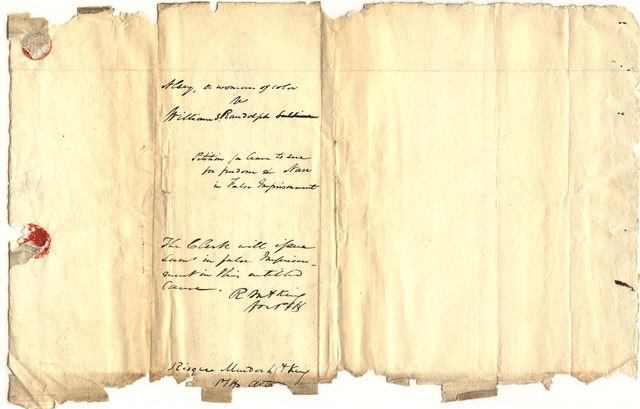 Alsey, a woman of color
vs
William S Randolph
Petition for leave to sue
for freedom & Narr
in False Imprisonment
The Clerk will issue
Sum in false Imprison-
ment in this entitled
Cause.
R M & King
for Plff
Risque Murdoch & King
Plffs Atts